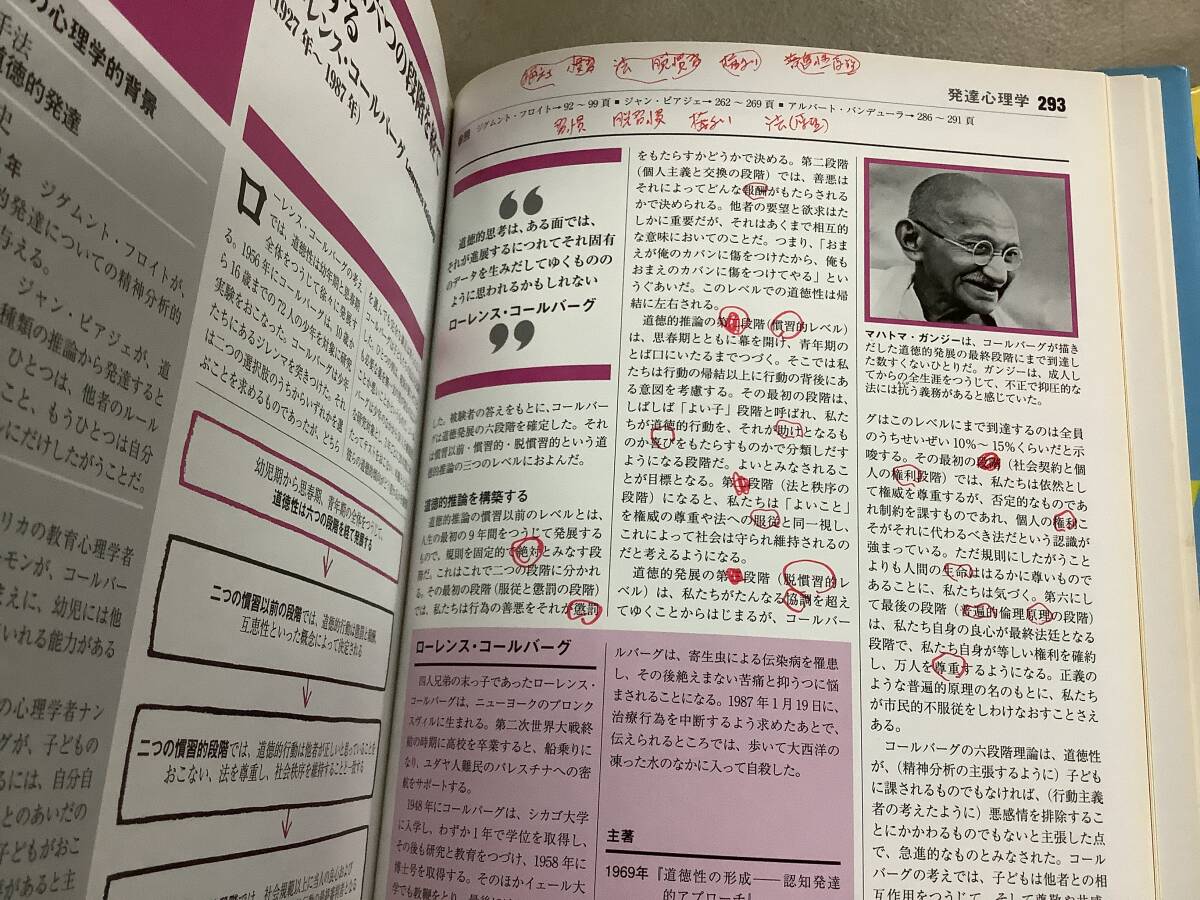 の心理学的背景
手法
道徳的発達
史
年 ジグムント・フロイトが、
的発達についての精神分析的
与える。
ジャン・ピアジェが、道
種類の推論から発達すると
ひとつは、他者のルール
こと、もうひとつは自分
ルにだけしたがうことだ。
リカの教育心理学者
モンが、コールバー
まえに、幼児には他
いれる能力がある
の心理学者ナン
グが、子どもの
るには、自分自
とのあいだの
子どもがおこ
があると主
六つの段階を経て
する
レンス・コールバーグ
(1927年〜1987年)
ローレンス・コールバーグの考え
では、道徳性は幼年期と思春期
全体をつうじて徐々に発展す
る。1956年にコールバーグは、10歳か
ら16歳までの72人の少年を対象に研究
実験をおこなった。コールバーグは少年
たちにあるジレンマを突きつけた。それ
は二つの選択肢のうちからいずれかを選
ぶことを求めるものであったが、どちら
幼児期から思春期、青年期の全体をつうじて、
道徳性は六つの段階を経て発展する
二つの慣習以前の段階では、道徳的行動は懲罰と報酬、
互恵性といった概念によって決定される
二つの慣習的段階では、道徳的行動は他者が正しいと思っていることを
おこない、法を尊重し、社会秩序を維持することと一致する
では、社会規範以上に当人の良心および
発達心理学 293
参照 ジグムント・フロイト→92〜99頁 ■ ジャン・ピアジェ→262〜269頁 ■ アルバート・バンデューラ→286〜291頁
習慣 脱習慣
“
道徳的思考は、ある面では、
それが進展するにつれてそれ固有
のデータを生みだしてゆくものの
ように思われるかもしれない
ローレンス・コールバーグ
”
した。被験者の答えをもとに、コールバー
グは道徳発展の六段階を確定した。それ
は慣習以前・慣習的・脱慣習的という道
徳的推論の三つのレベルにおよんだ。
道徳的推論を構築する
道徳的推論の慣習以前のレベルとは、
人生の最初の9年間をつうじて発展する
もので、規則を固定的で絶対とみなす段
階だ。これはこれで二つの段階に分かれ
る。その最初の段階(服従と懲罰の段階)
では、私たちは行為の善悪をそれが懲罰
をもたらすかどうかで決める。第二段階
(個人主義と交換の段階)では、善悪は
それによってどんな報酬がもたらされる
かで決められる。他者の要望と欲求はた
しかに重要だが、それはあくまで相互的
な意味においてのことだ。つまり、「おま
えが俺のカバンに傷をつけたから、俺も
おまえのカバンに傷をつけてやる」とい
うぐあいだ。このレベルでの道徳性は帰
結に左右される。
道徳的推論の第二段階(慣習的レベル)
は、思春期とともに幕を開け、青年期の
とば口にいたるまでつづく。そこでは私
たちは行動の帰結以上に行動の背後にあ
る意図を考慮する。その最初の段階は、
しばしば「よい子」段階と呼ばれ、私た
ちが道徳的行動を、それが助けとなるも
のか喜びをもたらすものかで分類しだす
ようになる段階だ。よいとみなされるこ
とが目標となる。第 段階(法と秩序の
段階)になると、私たちは「よいこと」
を権威の尊重や法への服従と同一視し、
これによって社会は守られ維持されるの
だと考えるようになる。
道徳的発展の第三段階(脱慣習的レ
ベル)は、私たちがたんなる協調を超え
てゆくことからはじまるが、コールバー
マハトマ・ガンジーは、コールバーグが描き
だした道徳的発展の最終段階にまで到達し
た数すくないひとりだ。ガンジーは、成人し
てからの全生涯をつうじて、不正で抑圧的な
法には抗う義務があると感じていた。
グはこのレベルにまで到達するのは全員
のうちせいぜい10%〜15%くらいだと示
唆する。その最初の段階(社会契約と個
人の権利段階)では、私たちは依然とし
て権威を尊重するが、否定的なものであ
れ制約を課すものであれ、個人の権利こ
そがそれに代わるべき法だという認識が
強まっている。ただ規則にしたがうこと
よりも人間の生命ははるかに尊いもので
あることに、私たちは気づく。第六にし
て最後の段階(普遍的倫理原理の段階)
は、私たち自身の良心が最終法廷となる
段階で、私たち自身が等しい権利を確約
し、万人を尊重するようになる。正義の
ような普遍的原理の名のもとに、私たち
が市民的不服従をしわけなおすことさえ
ある。
コールバーグの六段階理論は、道徳性
が、(精神分析の主張するように)子ども
に課されるものでもなければ、(行動主義
者の考えたように)悪感情を排除するこ
とにかかわるものでもないと主張した点
で、急進的なものとみなされた。コール
バーグの考えでは、子どもは他者との相
互作用をつうじて、そして尊敬や共感
ローレンス・コールバーグ
四人兄弟の末っ子であったローレンス・
コールバーグは、ニューヨークのブロンク
スヴィルに生まれる。第二次世界大戦終
結の時期に高校を卒業すると、船乗りに
なり、ユダヤ人難民のパレスチナへの密
航をサポートする。
1948年にコールバーグは、シカゴ大学
に入学し、わずか1年で学位を取得し、
その後も研究と教育をつづけ、1958年に
博士号を取得する。そのほかイェール大
学でも教鞭をとり、
ルバーグは、寄生虫による伝染病を罹患
し、その後絶えまない苦痛と抑うつに悩
まされることになる。1987年1月19日に、
治療行為を中断するよう求めたあとで、
伝えられるところでは、歩いて大西洋の
凍った水のなかに入って自殺した。
主著
1969年『道徳性の形成——認知発達
的アプローチ』